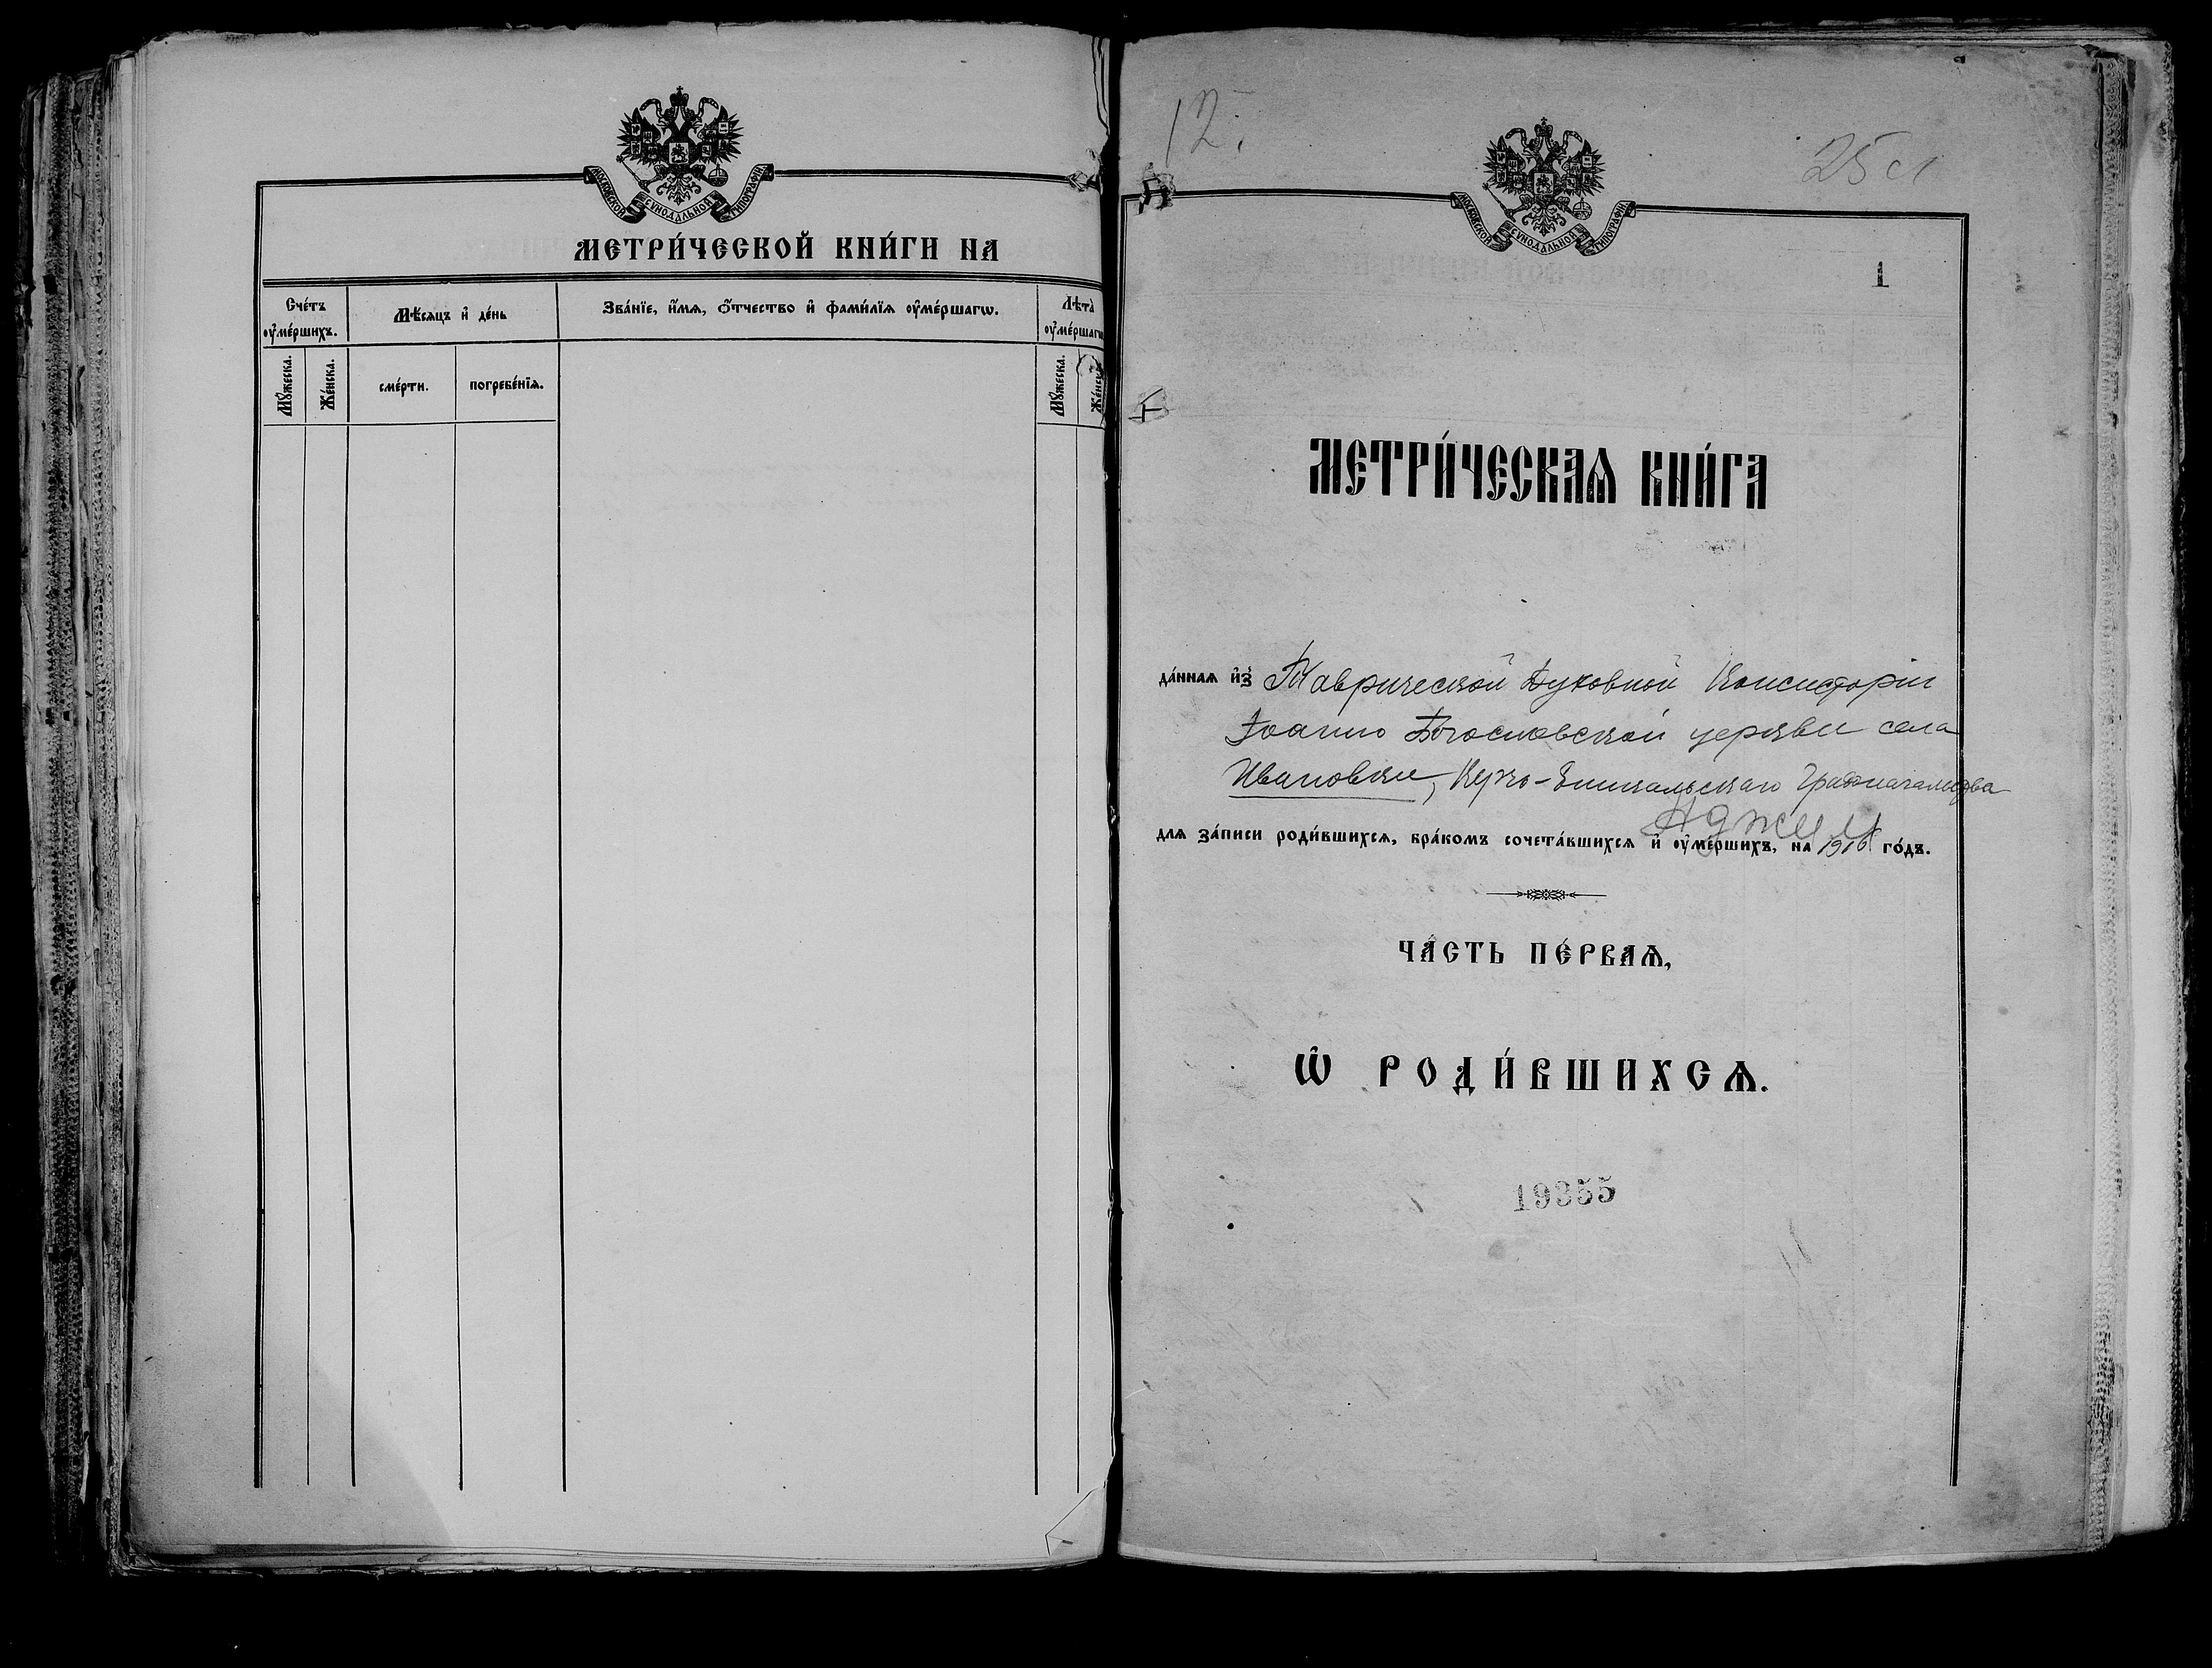 МОСКОВСКОЙ СѴНОДАЛЬНОЙ ТИПОГРАФІИ
МЕТРИ́ЧЕСКОЙ КНИ́ГИ НА
Сче́тъ ᲂу҆ме́ршихъ.
Мѣ́сяцъ и҆ де́нь
Зва́нїе, и҆́мѧ, ѻ҆́тчество и҆ фами́лїѧ ᲂу҆ме́ршагѡ.
Лѣ́та ᲂу҆ме́ршагѡ
Мꙋ́жеска.
Же́нска.
сме́рти.
погребе́нїѧ.
Мꙋ́жеска.
Же́нска
12.
25 сл
МОСКОВСКОЙ СѴНОДАЛЬНОЙ ТИПОГРАФІИ
1
МЕТРИ́ЧЕСКАѦ КНИ́ГА
да́ннаѧ и҆з̾ Таврической Духовной Консисторіи
Іоанно Богословской церкви села
Ивановки, Керчь-Еникальскаго Градоначальства
Аджи
для за́писи роди́вшихсѧ, бра́комъ сочета́вшихсѧ и҆ ᲂу҆ме́ршихъ, на 1916 го́дъ.
ЧА́СТЬ ПЕ́РВАѦ,
Ѡ҆ РОДИ́ВШИХСѦ.
19355